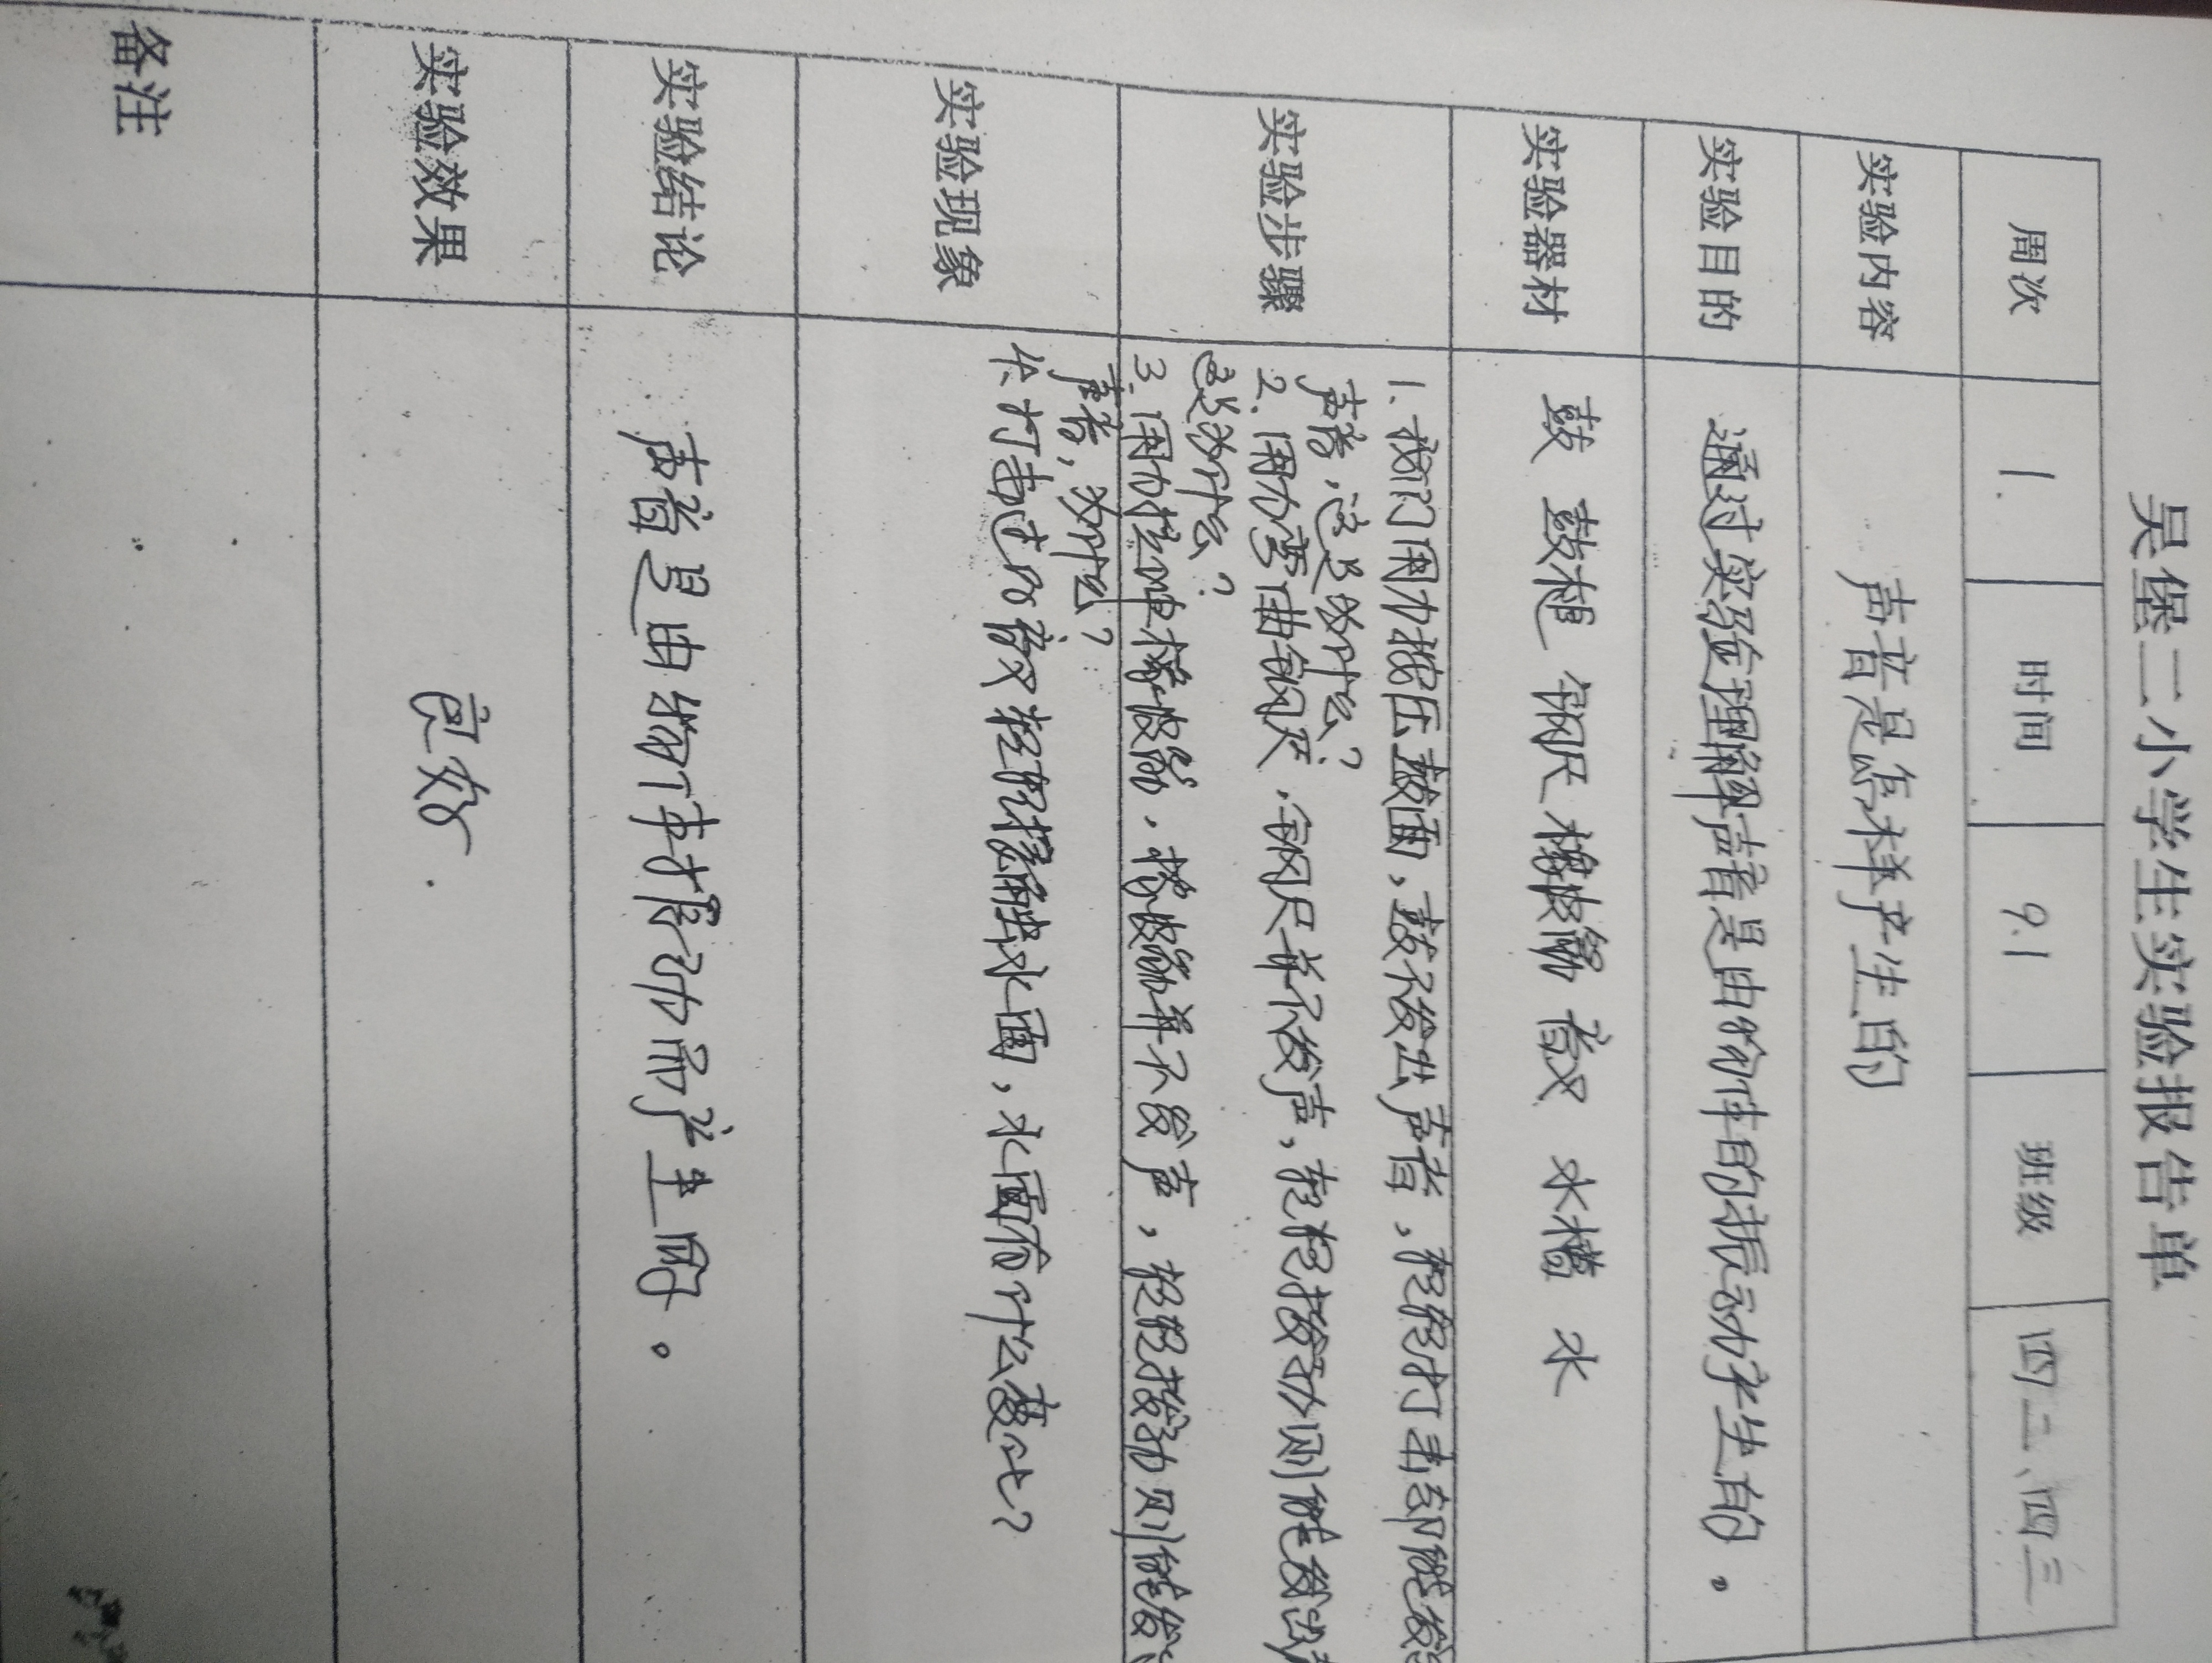 吴堡二小学生实验报告单
周次 1. 时间 9.1 班级 四二、四三
实验内容 声音是怎样产生的
实验目的 通过实验理解声音是由物体的振动产生的。
实验器材 鼓 鼓槌 钢尺 橡皮筋 音叉 水槽 水
实验步骤
1. 我们用力按压鼓面,鼓不发出声音,轻轻打击却能发出
声音,这是为什么?
2. 用力弯曲钢尺,钢尺并不发声,轻轻拨动则能发出声
这是为什么?
3. 用力拉伸橡皮筋,橡皮筋并不发声,轻轻拨动则能发
声音,为什么?
实验现象
4. 打击过的音叉轻轻接触水面,水面有什么变化?
实验结论 声音是由物体振动而产生的。
实验效果 良好
备注